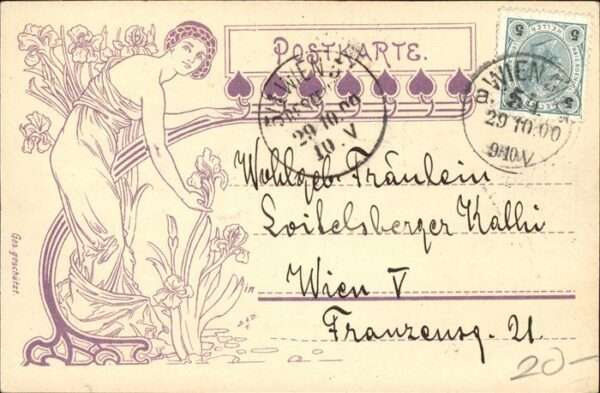 POSTKARTE.
WIEN
29.10.00
10.V
5
5
WIEN
29 10.00
9-10.V
Wohlgeb. Fräulein
Loitelsberger Kathi
in
Wien V
Franzensg. 21.
Ges. geschützt.
20-